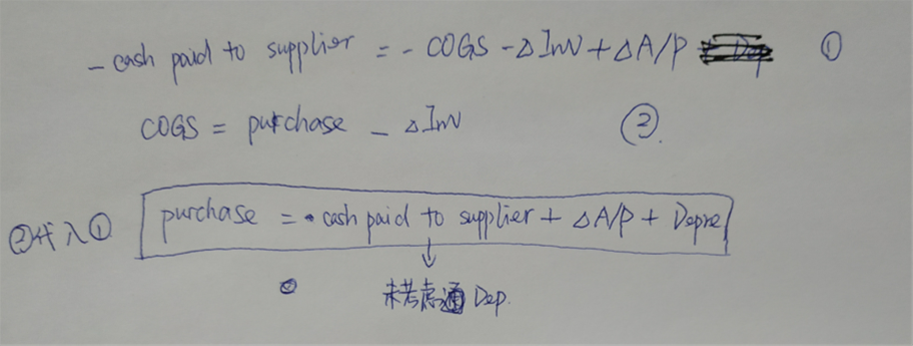 - cash paid to supplier = - COGS - ΔInv + ΔA/P ①
COGS = purchase - ΔInv ②.
②代入① purchase = cash paid to supplier + ΔA/P + Depre
未考虑 Dep.